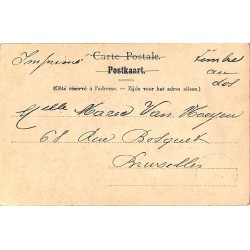 Imprimé Carte Postale. Timbre
Postkaart. au
(Côté réservé à l'adresse. — Zijde voor het adres alleen.) dos
Melle Maria Van
68 Rue Bosquet
Bruxelles